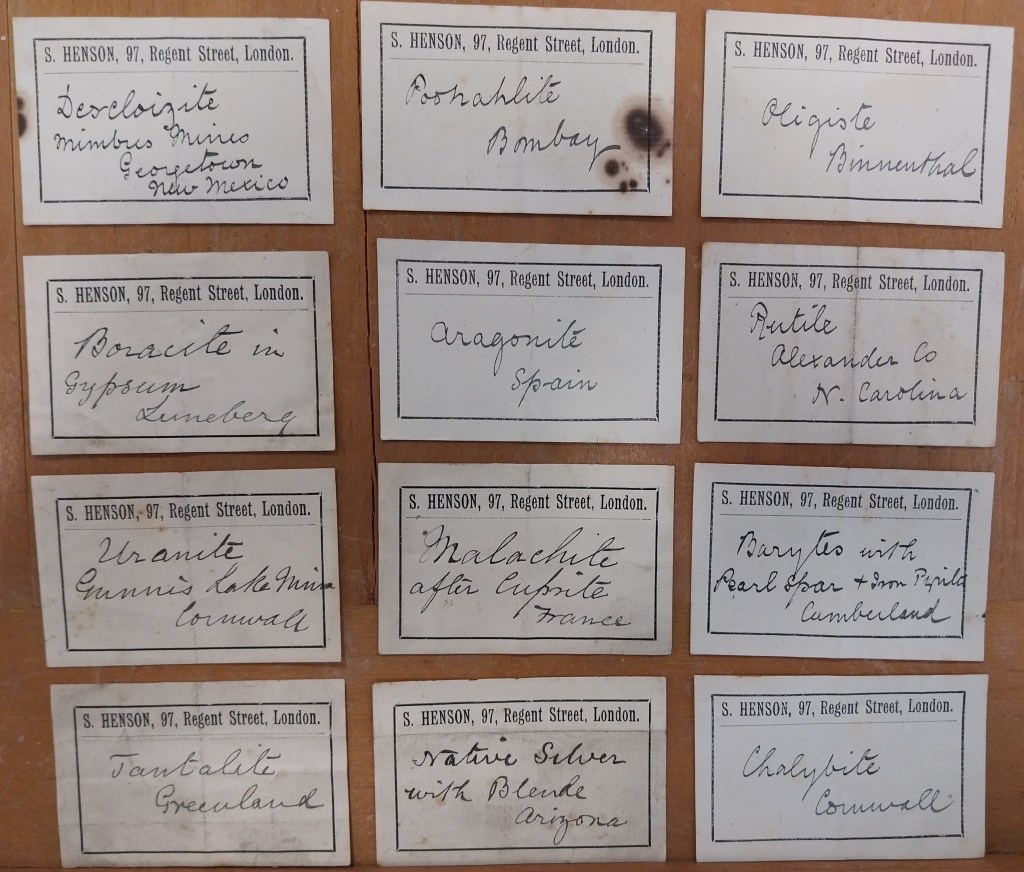 S. HENSON, 97, Regent Street, London.
Descloizite
Mimbres Mines
Georgetown
New Mexico
S. HENSON, 97, Regent Street, London.
Poonahlite
Bombay
S. HENSON, 97, Regent Street, London.
Oligiste
Binnenthal
S. HENSON, 97, Regent Street, London.
Boracite in
Gypsum
Luneberg
S. HENSON, 97, Regent Street, London.
Aragonite
Spain
S. HENSON, 97, Regent Street, London.
Rutile
Alexander Co
N. Carolina
S. HENSON, 97, Regent Street, London.
Uranite
Gunnis Lake Mine
Cornwall
S. HENSON, 97, Regent Street, London.
Malachite
after Cuprite
France
S. HENSON, 97, Regent Street, London.
Barytes with
Pearl Spar + Iron Pyrites
Cumberland
S. HENSON, 97, Regent Street, London.
Tantalite
Greenland
S. HENSON, 97, Regent Street, London.
Native Silver
with Blende
Arizona
S. HENSON, 97, Regent Street, London.
Chalybite
Cornwall